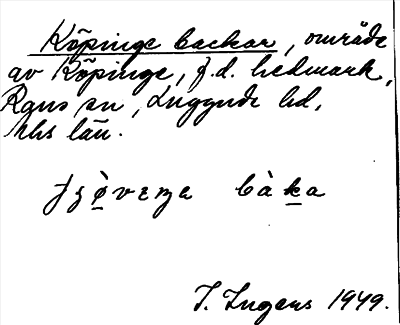 Köpinge backar, område
av Köpinge, f.d. hedmark,
Raus sn, Luggude hd,
Mhs län.
bàka
I. Ingers 1949.